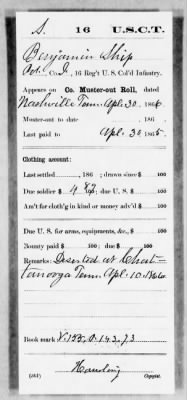 S. 16 U.S.C.T.
Benjamin Ship
Pvt., Co. I, 16 Reg't U. S. Col'd Infantry.
Appears on Co. Muster-out Roll, dated
Nashville Tenn. Apl. 30, 1866
Muster-out to date , 186 .
Last paid to Apl. 30 1865.
Clothing account:
Last settled , 186 ; drawn since $ 100
Due soldier $ 4 87/100; due U. S. $ 100
Am't for cloth'g in kind or money adv'd $ 100
Due U. S. for arms, equipments, &c., $ 100
Bounty paid $ 100; due $ 100
Remarks: Deserted at Chat-
tanooga Tenn. Apl. 10. 1866.
Book mark:
Copyist.